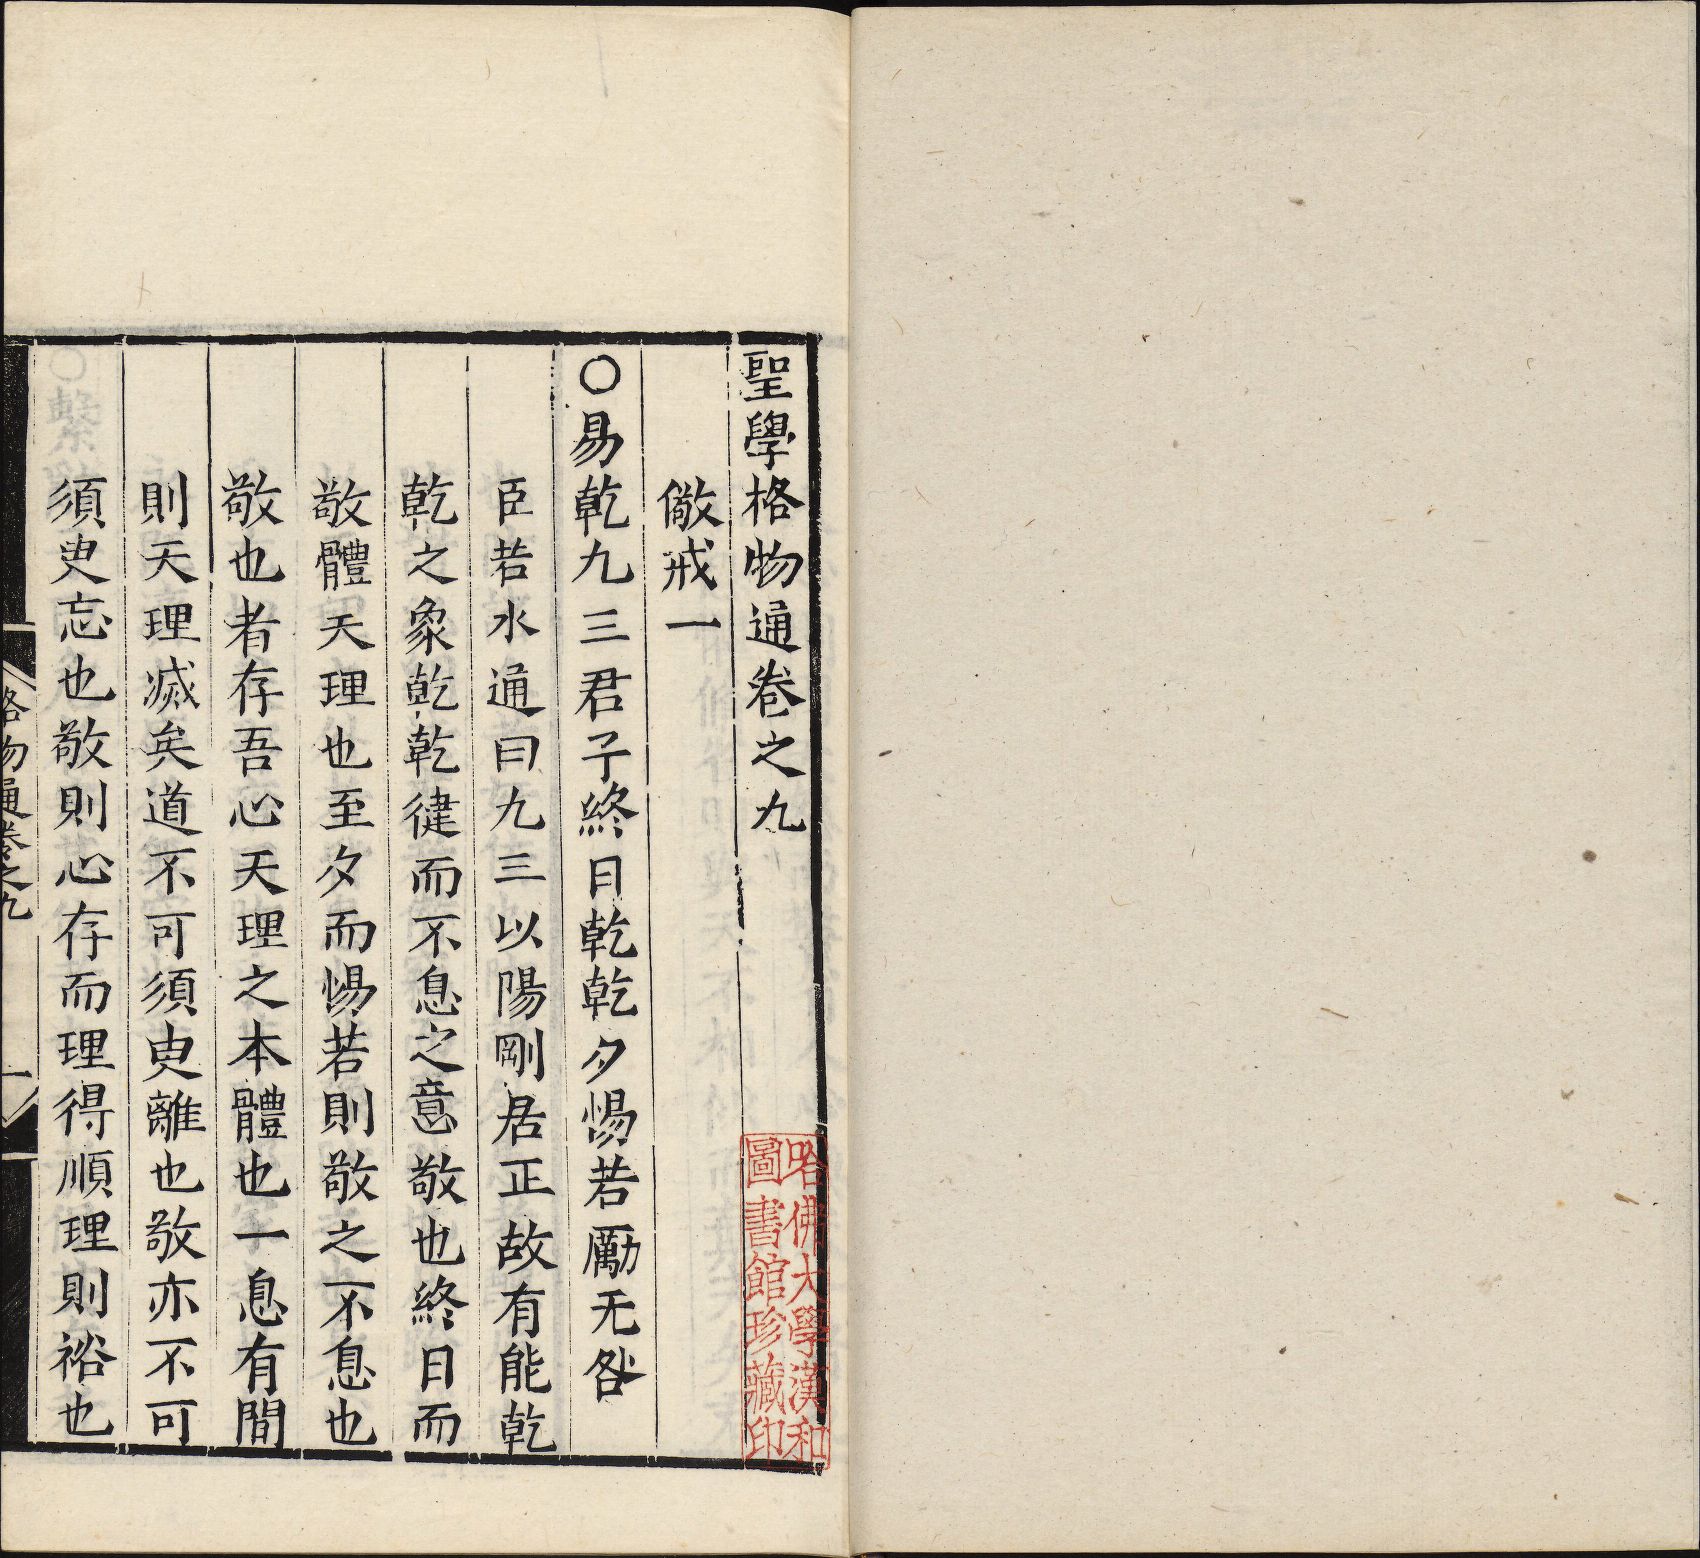 聖學格物通卷之九
儆戒一
○易乾九三君子終日乾乾夕惕若厲无咎
臣若水通曰九三以陽剛居正故有能乾
乾之象乾乾健而不息之意敬也終日而
敬體天理也至夕而惕若則敬之不息也
敬也者存吾心天理之本體也一息有間
則天理滅矣道不可須臾離也敬亦不可
須臾忘也敬則心存而理得順理則裕也
格物通卷之九
一
哈佛大學漢和
圖書館珍藏印